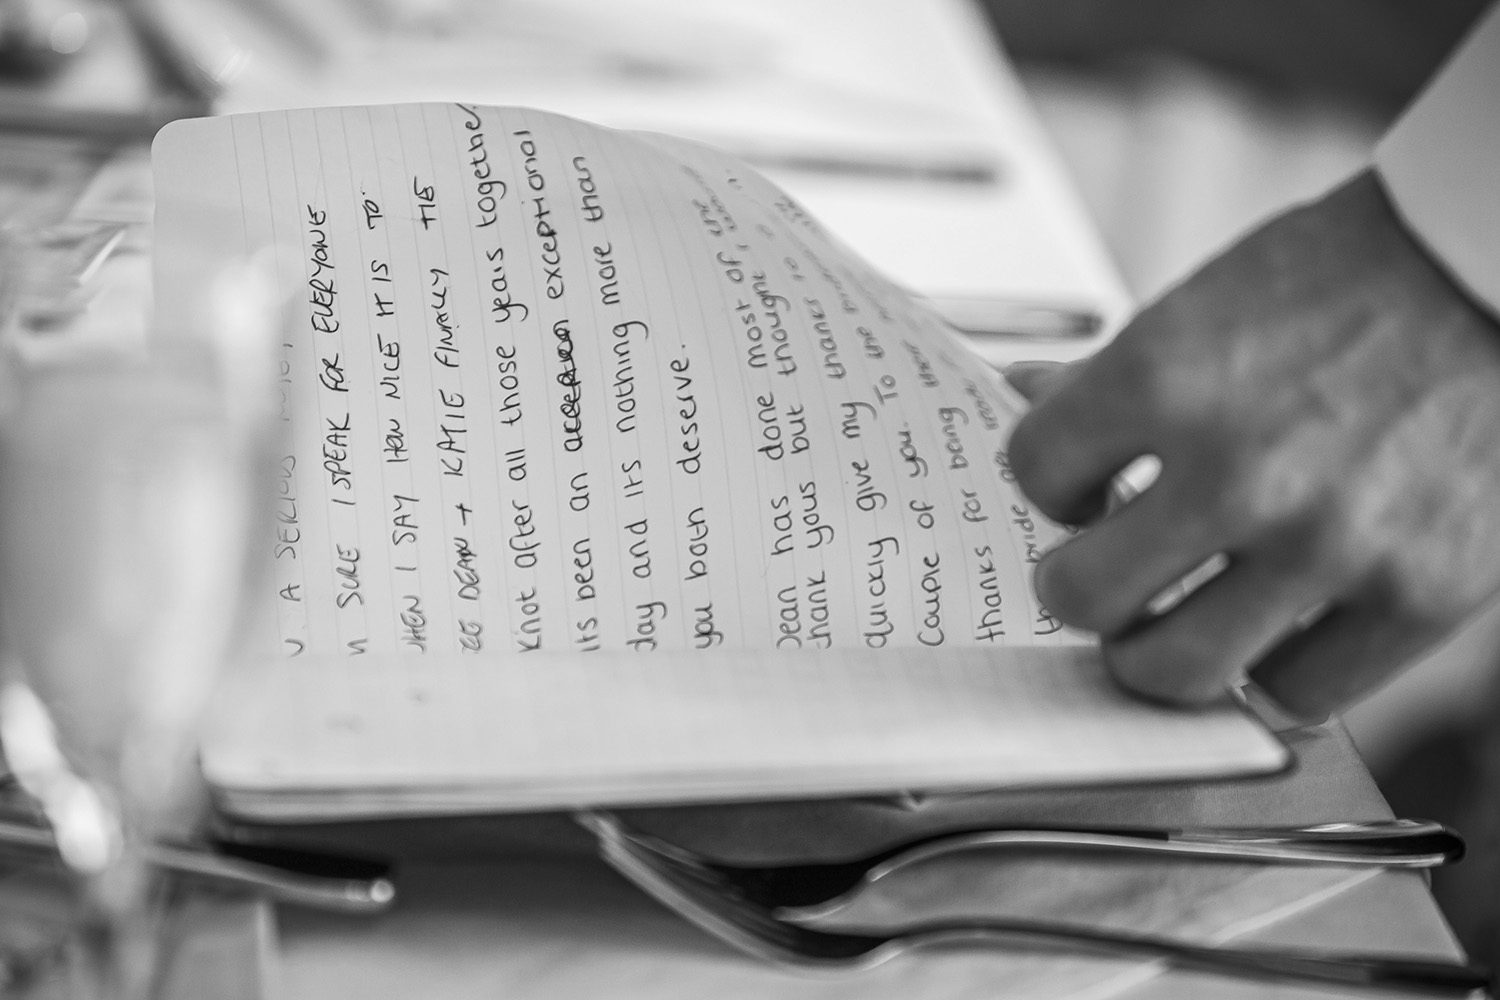 A SERIOUS
SURE I SPEAK FOR EVERYONE
WHEN I SAY HOW NICE IT IS TO
SEE DEAN + KATIE FINALLY TIE
Knot after all those years together.
Its been an exceptional
day and its nothing more than
you both deserve.
Dean has done most of the
thank yous but thought
quickly give my thanks to
Couple of you. To the
thanks for being